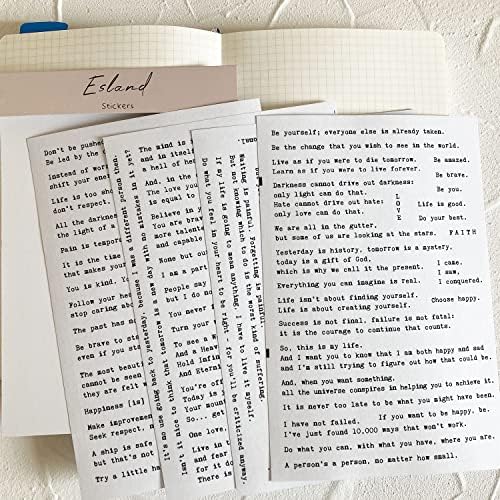 Esland
Stickers
Don't be pushed
Be led by the
Instead of wor
shift your ener
Life is too sho
don't respect.
All the darknes
the light of a
Pain is tempora
It is the time
that makes your
You is kind. Y
Follow your hea
stop caring abo
The past has n
Be brave to st
even if you sta
The most beaut
cannot be seen
they are felt
Happiness [is]
Make improvemen
Seek respect, n
A ship is safe
but that's not
Try a little ha
no use going back to yesterday, because I was a different person then;
Isn't it nice to think that tomorrow is a new day with no mistakes in it yet?
The mind is
and in itself
a hell of he
And, in the
The love you
is equal to
Believe in y
You are brav
more talente
and capable
None but our
People say
but I do no
I am a part
You never
Turn your
To see a W
And a Heav
Hold Infin
And Eterni
You're off
Today is
Your moun
So... get
One love,
Live in
and fear
for it do
There is
Waiting is painful. Forgetting is painful.
But not knowing which to do is the worst kind of suffering.
If my life is going to mean anything, I have to live it myself.
Do what you feel in your heart to be right - for you'll be criticized anyway.
Be yourself; everyone else is already taken.
Be the change that you wish to see in the world.
Live as if you were to die tomorrow. Be amazed.
Learn as if you were to live forever.
Be brave.
Darkness cannot drive out darkness:
only light can do that. Be you.
Hate cannot drive out hate: LOVE Life is good.
only love can do that. Do your best.
We are all in the gutter,
but some of us are looking at the stars. FAITH
Yesterday is history, tomorrow is a mystery,
today is a gift of God,
which is why we call it the present. I came,
I saw,
Everything you can imagine is real. I conquered.
Life isn't about finding yourself.
Life is about creating yourself. Choose happy.
Success is not final, failure is not fatal:
it is the courage to continue that counts.
So, this is my life.
And I want you to know that I am both happy and sad
and I'm still trying to figure out how that could be.
And, when you want something,
all the universe conspires in helping you to achieve it.
It is never too late to be what you might have been.
I have not failed. If you want to be happy, be.
I've just found 10,000 ways that won't work.
Do what you can, with what you have, where you are.
A person's a person, no matter how small.